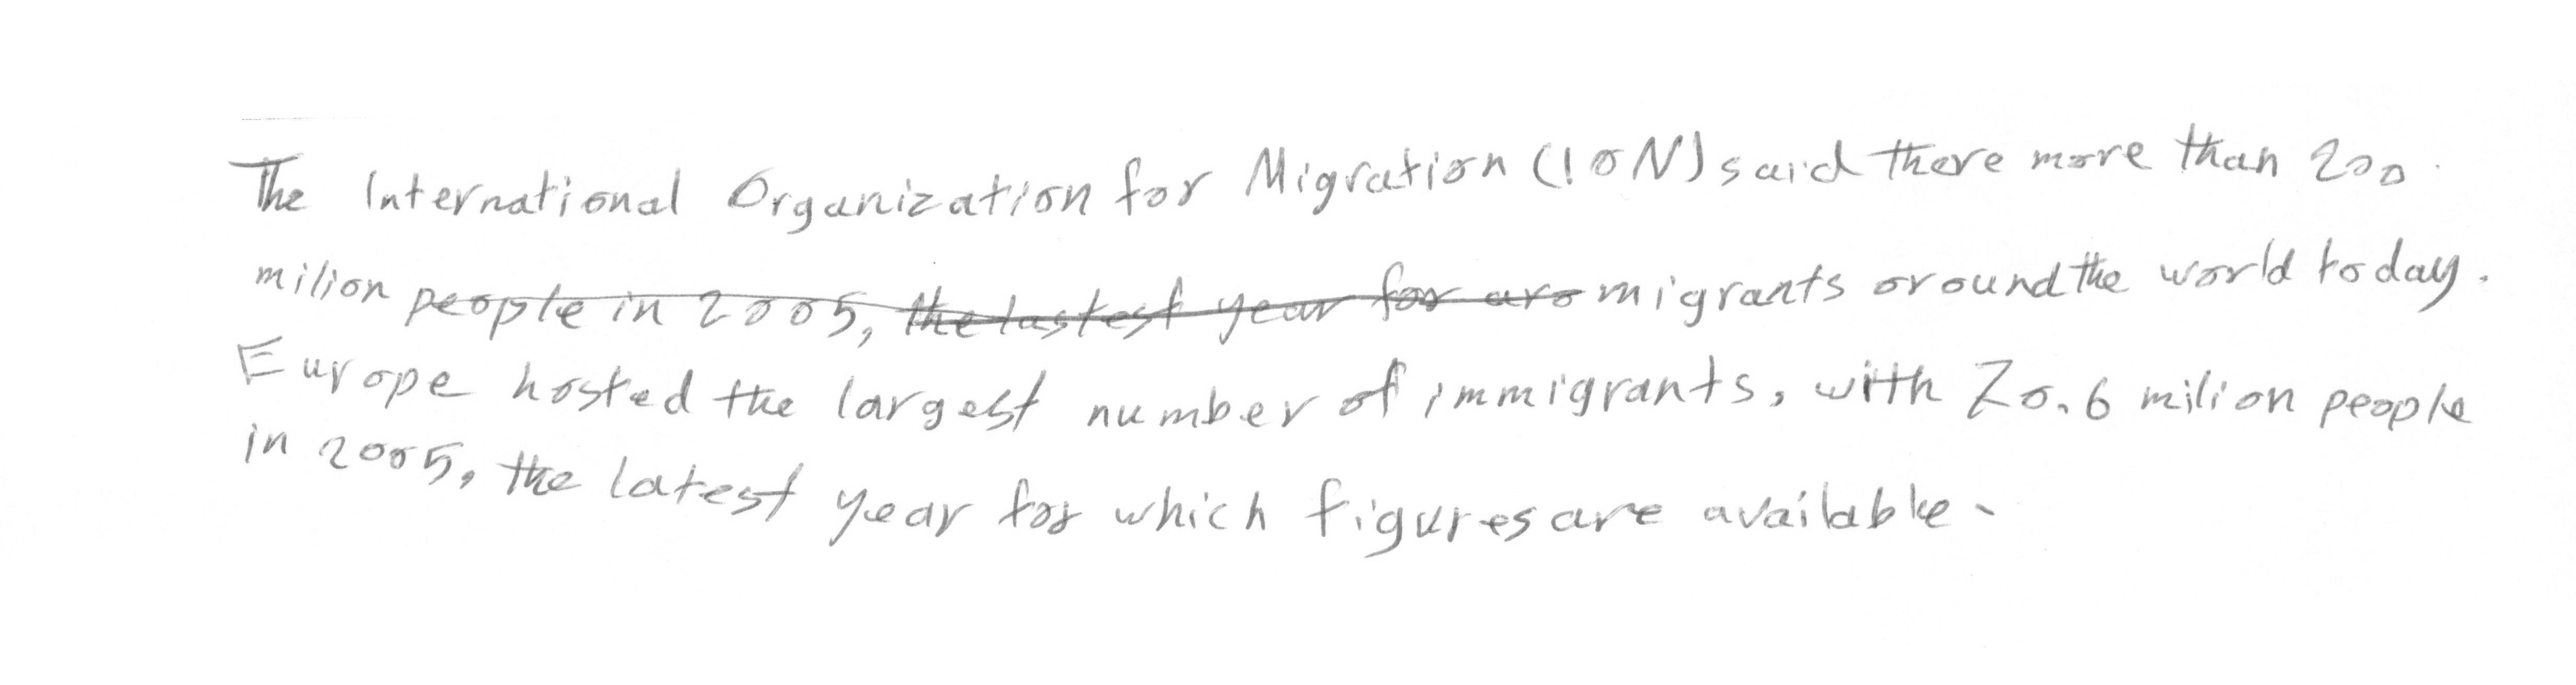 The International Organization for Migration (ION) said there more than 200
milion people in 2005, the lastest year for aro migrants oround the world today.
Europe hosted the largest number of immigrants, with 70.6 milion people
in 2005, the latest year for which figures are available.